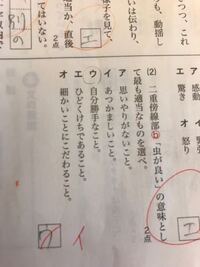 これ
つつ、
も、動揺し
い は伝わり、
様子を見て、
当か、直後
2点
エ
てはいない。
ア
エ 驚き
オ 怒り
(2) 二重傍線部ⓑ「虫が良い」の意味と
して最も適当なものを選べ。
2点
ア 思いやりがないこと。
イ あつかましいこと。
ウ 自分勝手なこと。
エ ひどくけちであること。
オ 細かいことにこだわること。
イ